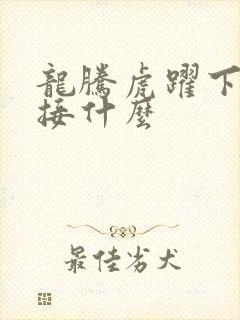 龍騰虎躍下
接什麼
最佳劣犬